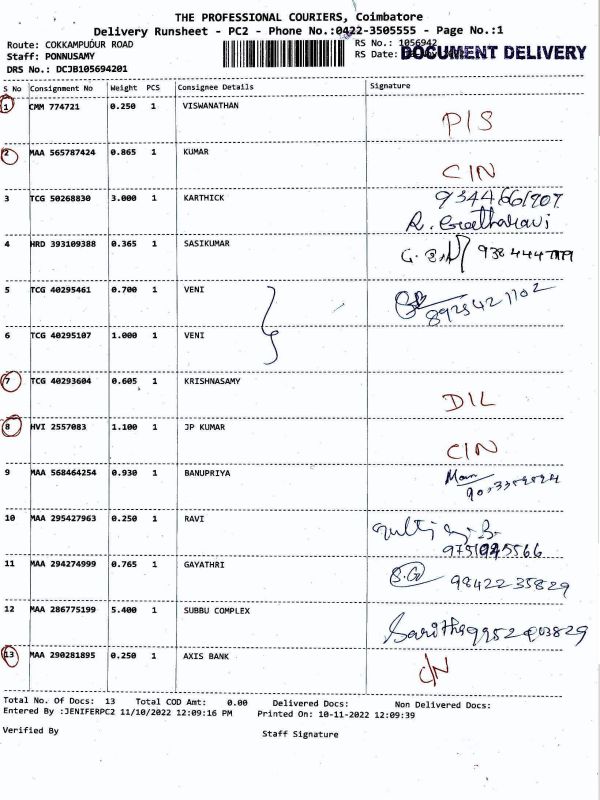 THE PROFESSIONAL COURIERS, Coimbatore
Delivery Runsheet - PC2 - Phone No.:0422-3505555 - Page No.:1
Route: COKKAMPUDUR ROAD RS No.: 1056942
Staff: PONNUSAMY RS Date: DOCUMENT DELIVERY
DRS No.: DCJB105694201
S No Consignment No Weight PCS Consignee Details Signature
1 CMM 774721 0.250 1 VISWANATHAN
P/S
2 MAA 565787424 0.865 1 KUMAR
C/N
3 TCG 50268830 3.000 1 KARTHICK 9344661707
R.
4 HRD 393109388 0.365 1 SASIKUMAR
5 TCG 40295461 0.700 1 VENI
8925421102
6 TCG 40295107 1.000 1 VENI
7 TCG 40293604 0.605 1 KRISHNASAMY
D/L
8 HVI 2557083 1.100 1 JP KUMAR
C/N
9 MAA 568464254 0.930 1 BANUPRIYA
10 MAA 295427963 0.250 1 RAVI
11 MAA 294274999 0.765 1 GAYATHRI
S.G 9842235829
12 MAA 286775199 5.400 1 SUBBU COMPLEX
Saritha
13 MAA 290281895 0.250 1 AXIS BANK
C/N
Total No. Of Docs: 13 Total COD Amt: 0.00 Delivered Docs: Non Delivered Docs:
Entered By :JENIFERPC2 11/10/2022 12:09:16 PM Printed On: 10-11-2022 12:09:39
Verified By Staff Signature